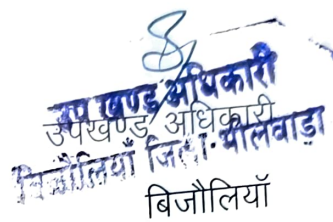 उप खण्ड अधिकारी
उपखण्ड अधिकारी
बिजौलियाँ जिला-भीलवाड़ा
बिजौलियॉ